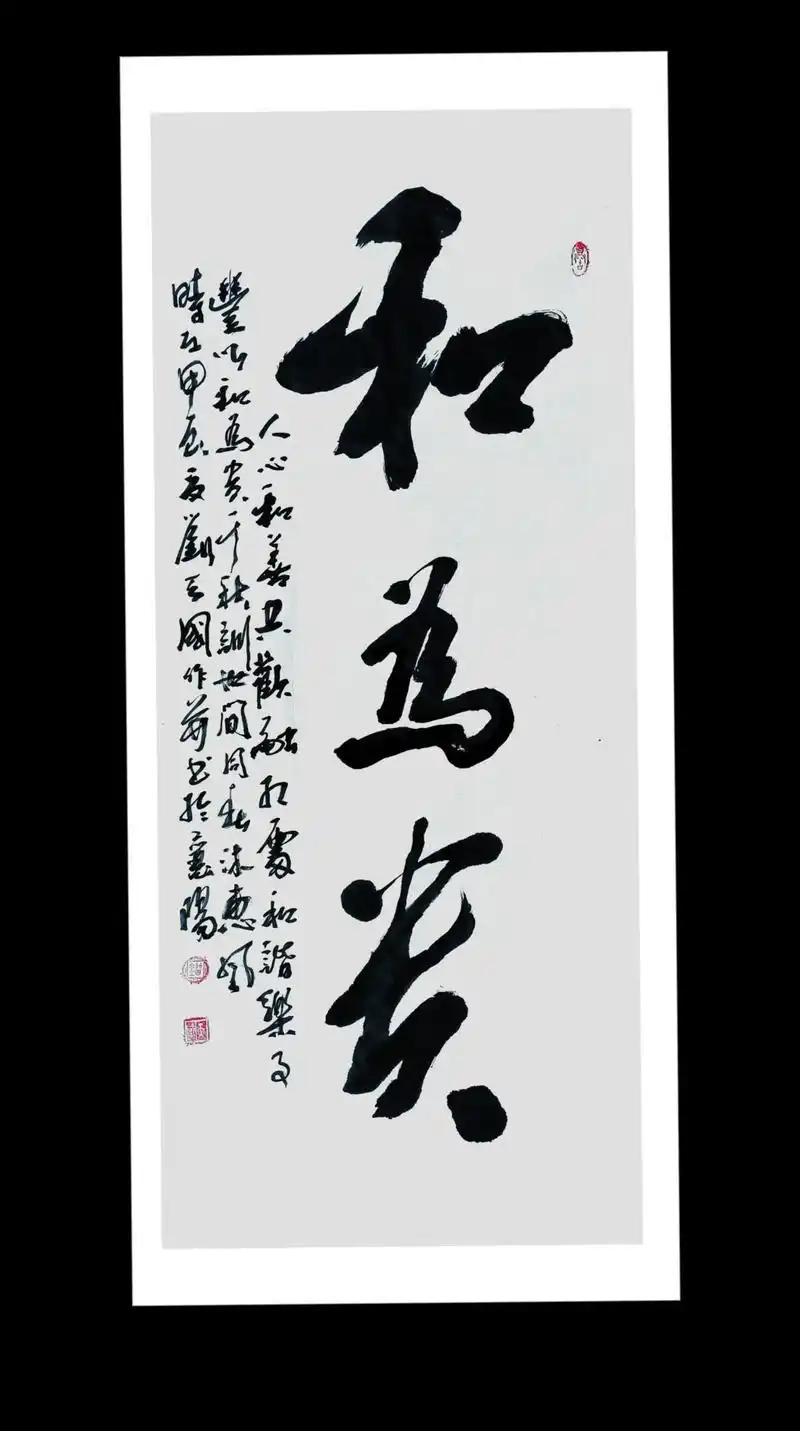 和為貴
人心和善共歡融相處和諧樂事
豐唯和為貴千秋訓世間同春沐惠風
時在甲辰夏劉玉國作並書於襄陽